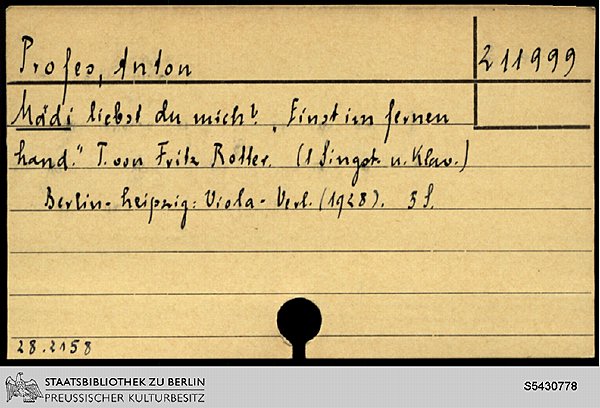 Profes, Anton
211999
Mädi liebst du mich? „Einst im fernen
Land." T. von Fritz Rotter. (1 Singst. u. Klav.)
Berlin-Leipzig: Viola-Verl. (1928). 3 S.
28.2158
STAATSBIBLIOTHEK ZU BERLIN
PREUSSISCHER KULTURBESITZ
S5430778